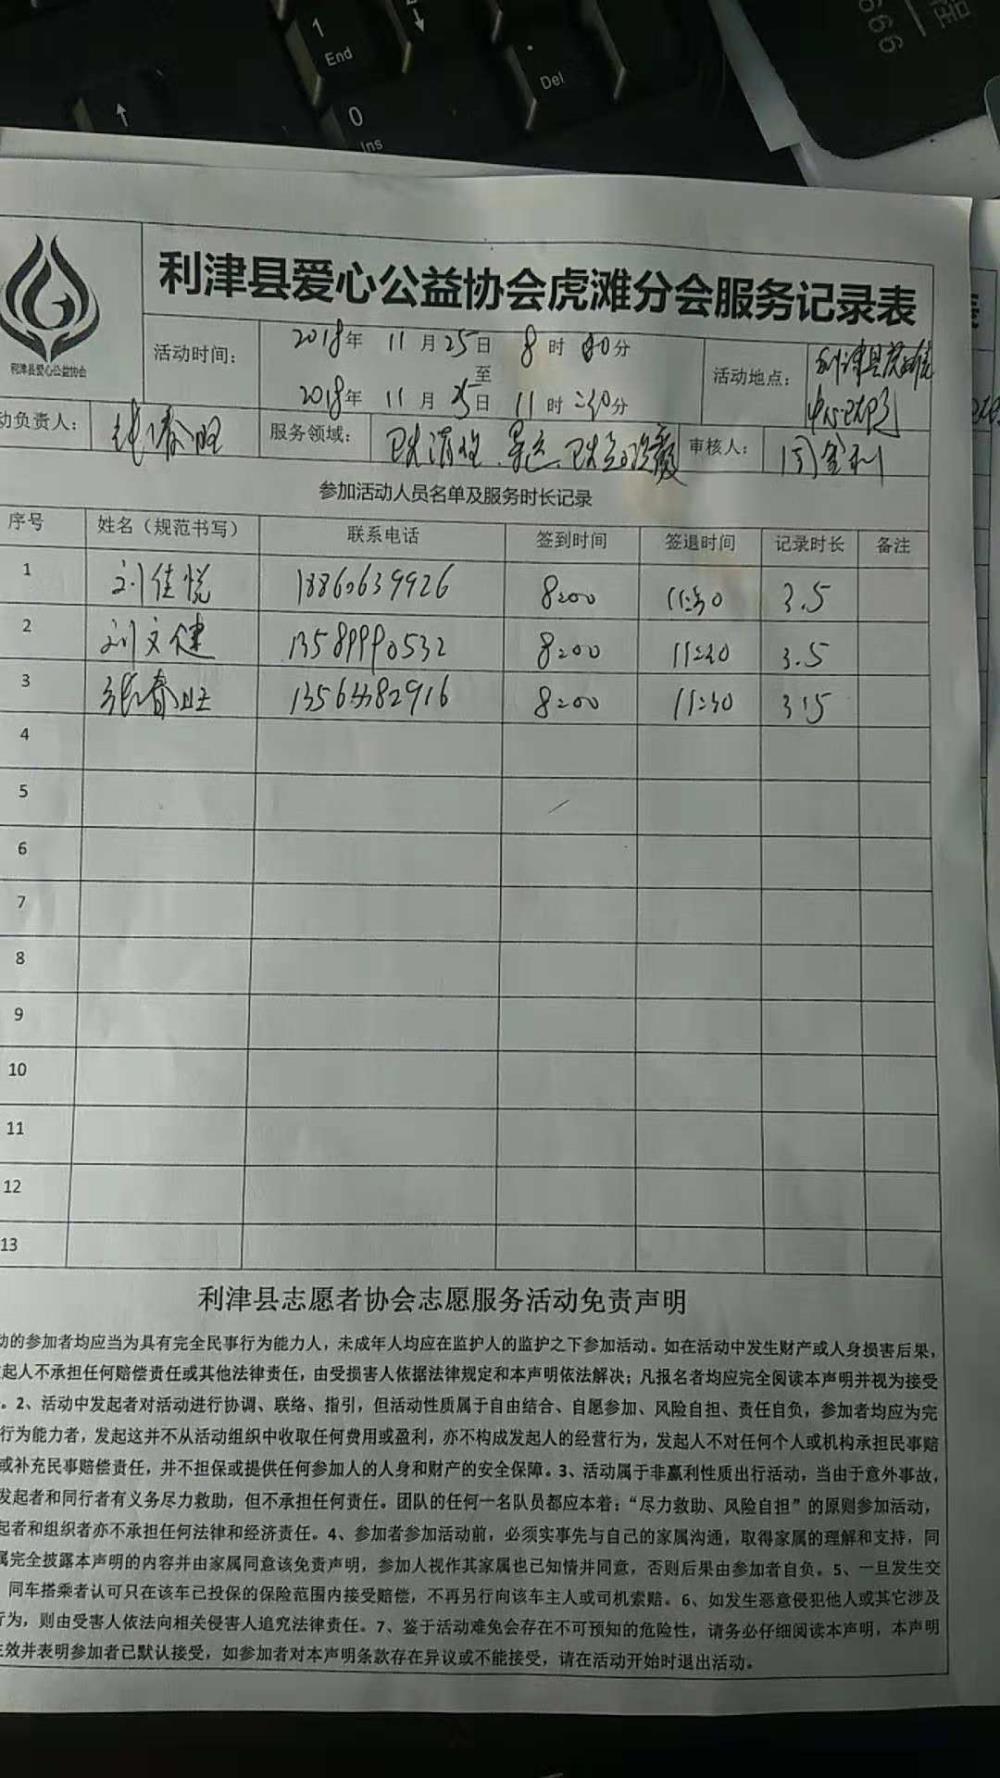 1
End
Del
0
Ins
666
利津县爱心公益协会
利津县爱心公益协会虎滩分会服务记录表
活动时间：
2018年 11月25日 8时00分
至
2018年 11月25日 11时30分
活动地点：
利津县
动负责人：
张春旺
服务领域：
审核人：
周金利
参加活动人员名单及服务时长记录
序号 姓名（规范书写） 联系电话 签到时间 签退时间 记录时长 备注
1 刘佳悦 18860639926 8:00 11:30 3.5
2 刘文健 13589990532 8:00 11:30 3.5
3 张春旺 8:00 11:30 3.5
4
5
6
7
8
9
10
11
12
13
利津县志愿者协会志愿服务活动免责声明
动的参加者均应当为具有完全民事行为能力人，未成年人均应在监护人的监护之下参加活动。如在活动中发生财产或人身损害后果，
起人不承担任何赔偿责任或其他法律责任，由受损害人依据法律规定和本声明依法解决；凡报名者均应完全阅读本声明并视为接受
。2、活动中发起者对活动进行协调、联络、指引，但活动性质属于自由结合、自愿参加、风险自担、责任自负，参加者均应为完
行为能力者，发起这并不从活动组织中收取任何费用或盈利，亦不构成发起人的经营行为，发起人不对任何个人或机构承担民事赔
或补充民事赔偿责任，并不担保或提供任何参加人的人身和财产的安全保障。3、活动属于非赢利性质出行活动，当由于意外事故，
发起者和同行者有义务尽力救助，但不承担任何责任。团队的任何一名队员都应本着：“尽力救助、风险自担”的原则参加活动，
起者和组织者亦不承担任何法律和经济责任。4、参加者参加活动前，必须实事先与自己的家属沟通，取得家属的理解和支持，同
属完全披露本声明的内容并由家属同意该免责声明，参加人视作其家属也已知情并同意，否则后果由参加者自负。5、一旦发生交
同车搭乘者认可只在该车已投保的保险范围内接受赔偿，不再另行向该车主人或司机索赔。6、如发生恶意侵犯他人或其它涉及
行为，则由受害人依法向相关侵害人追究法律责任。7、鉴于活动难免会存在不可预知的危险性，请务必仔细阅读本声明，本声明
效并表明参加者已默认接受，如参加者对本声明条款存在异议或不能接受，请在活动开始时退出活动。